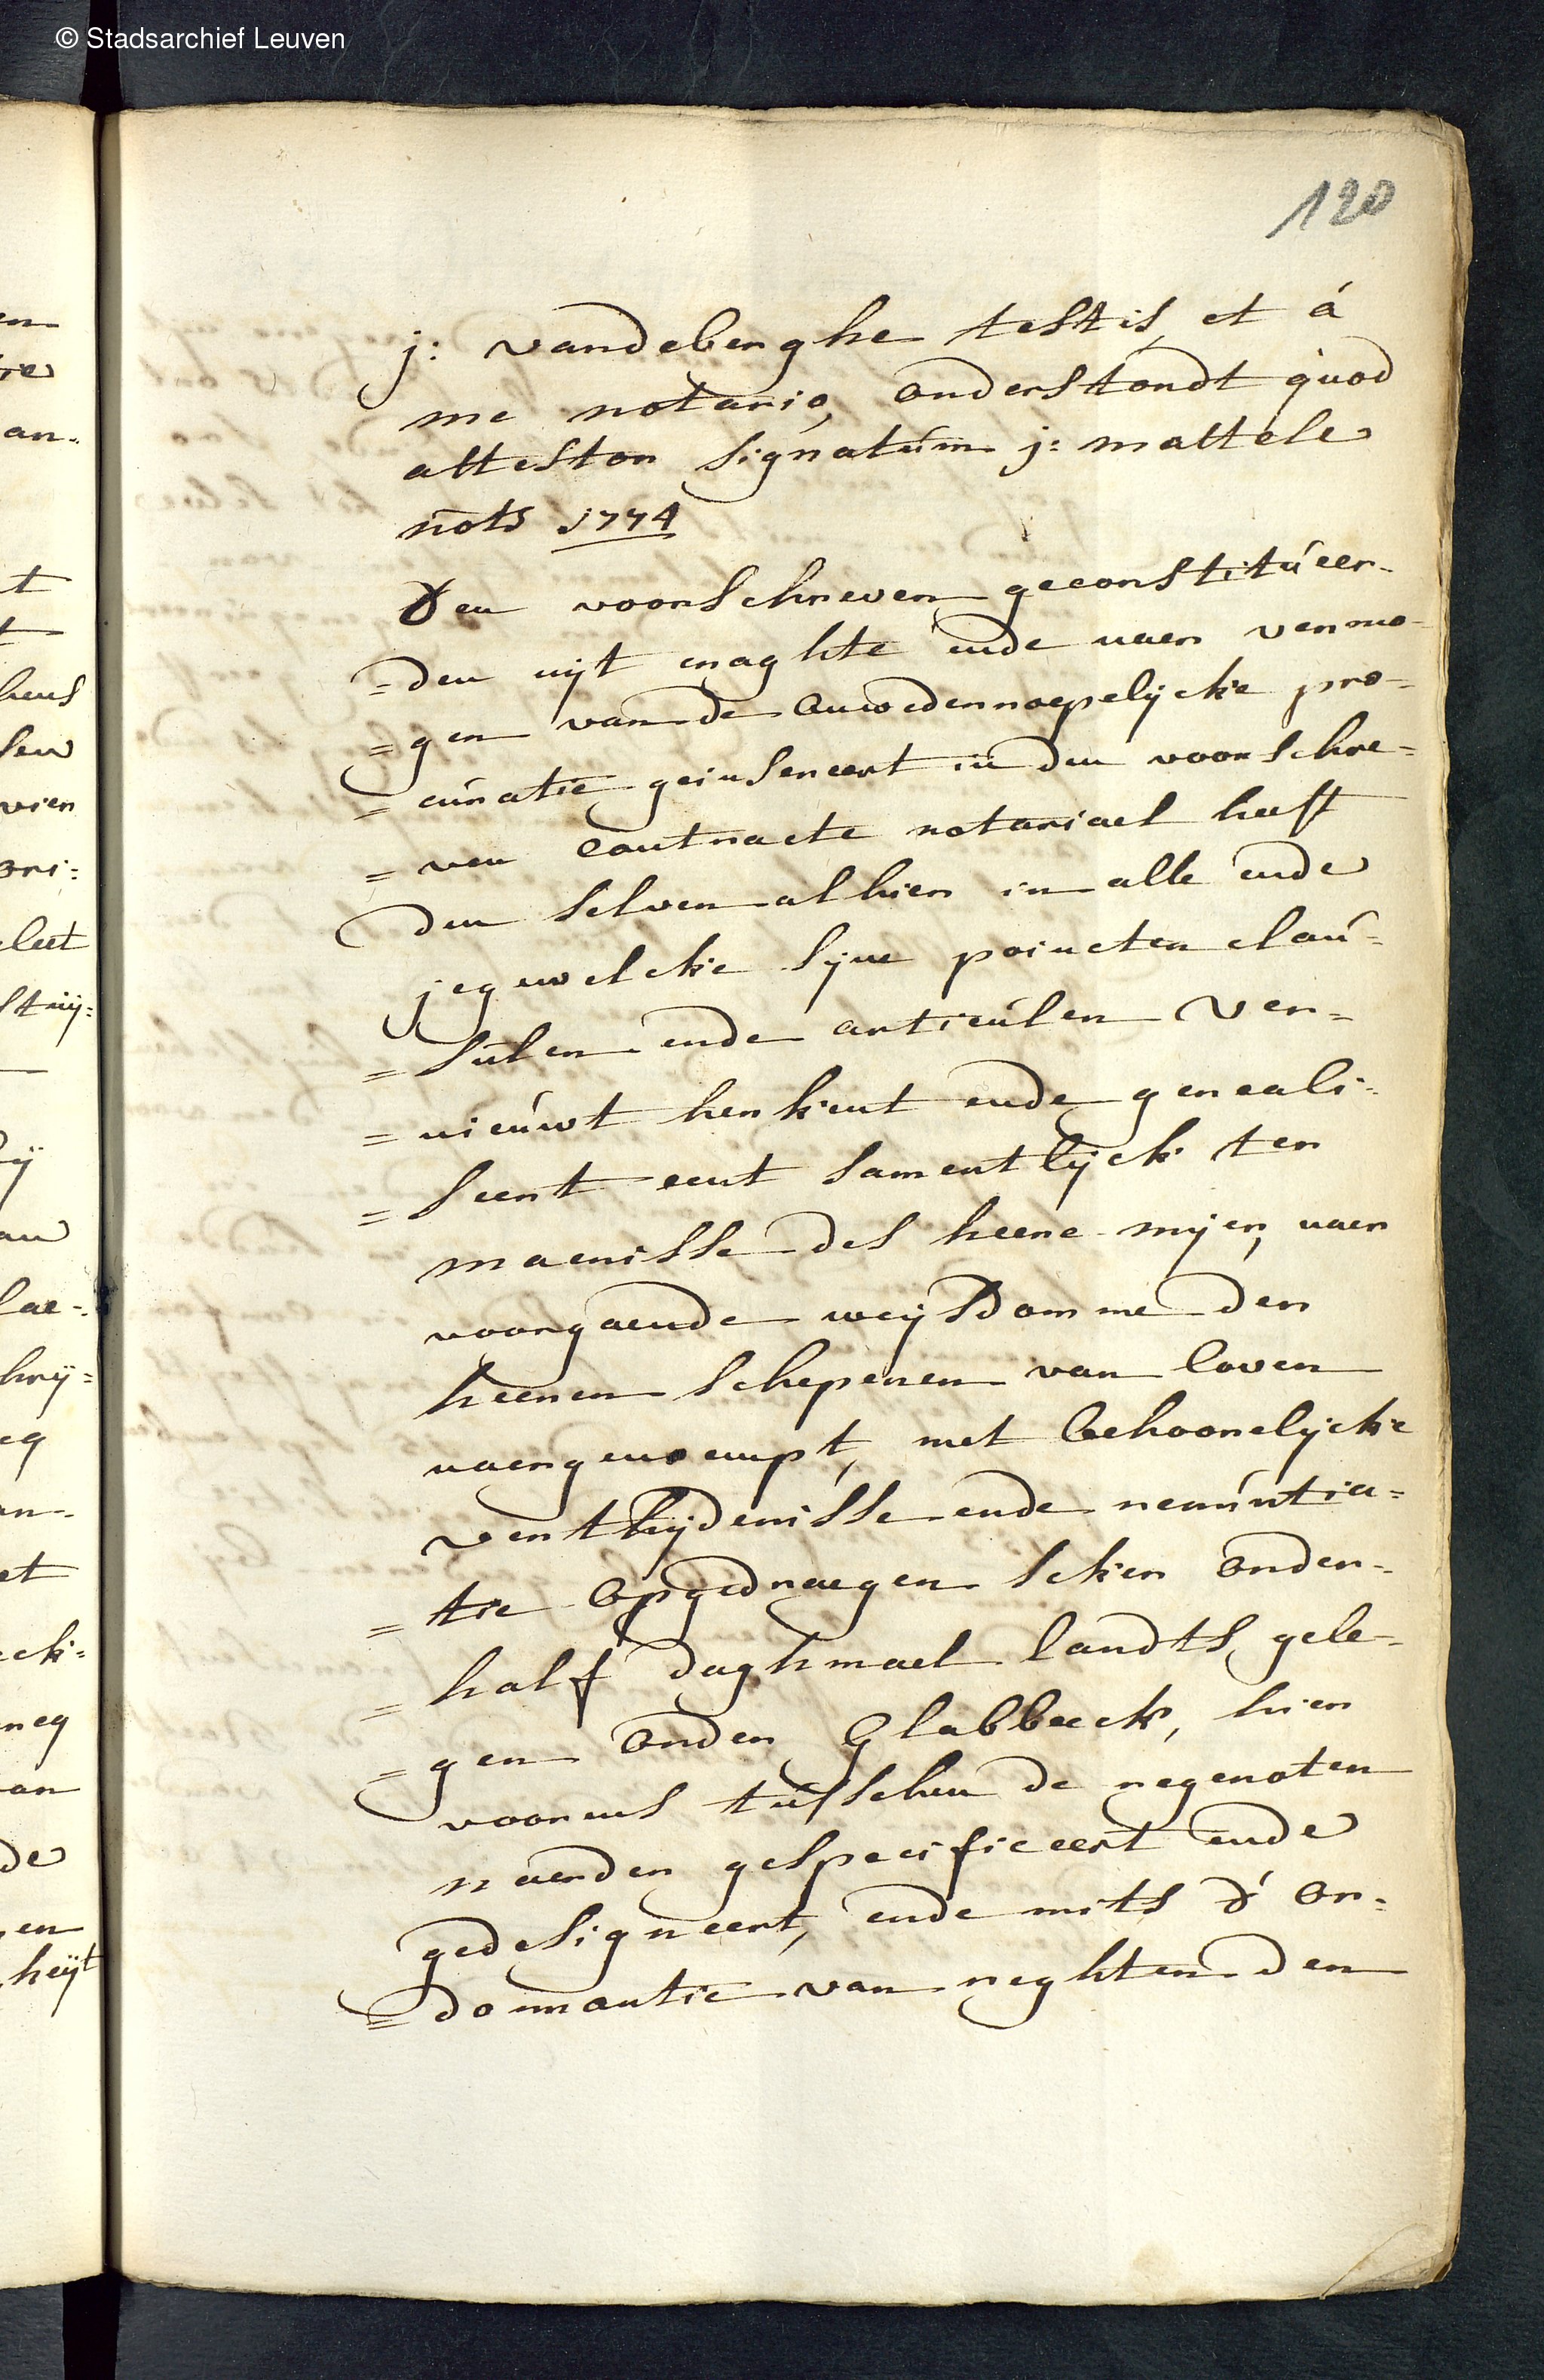 © Stadsarchief Leuven
120
j: vandeberghe testis, et á
me notario, onderstondt quod
attestor signatúm j: mattele
nots 1774
Den voorschreven geconstitúeer-
=den uijt maghte ende naer vermo-
=gen van de onwederroepelijcke pro-
=cúratie geinsereert in den voorschre=
=ven contracte notariael heeft
den selven alhier in alle ende
jegewelcke sijne poincten claú=
=súlen ende articúlen ver=
=nieúwt herkent ende gereali=
=seert eerst samentlijck ter
maenisse des heere mijer, naer
voorgaende weijsdomme der
heeren schepenen van loven
naergenoempt, met behoorelijcke
verthijdenisse ende renúntia=
=tie opgedraegen seker onder-
=half daghmael landts, gele-
=gen onder Glabbeeck, hier
voorens tússchen de regenoten
naerder gespecificeert ende
gedesigneert, ende mits d' or=
=donnantie van reghten den